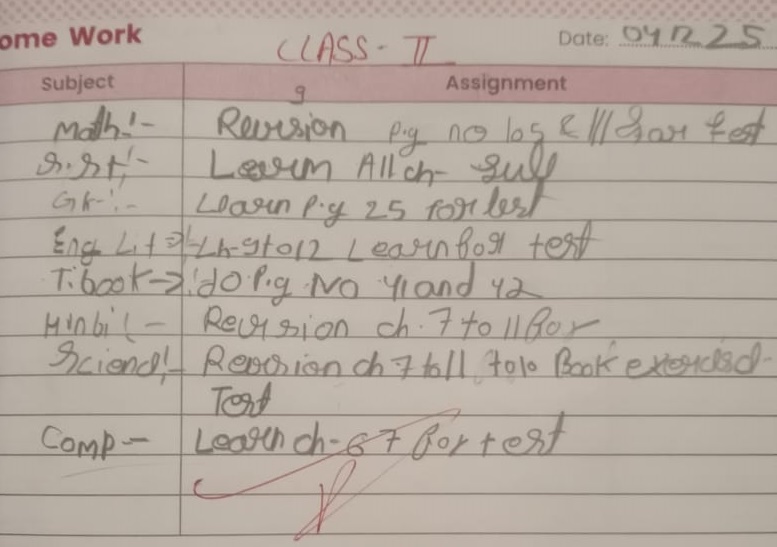 ome Work CLASS - II Date: 04 12 25
Subject Assignment
g
Math:- Revision p.g no 109 & 111 for test
S.St:- Learn All ch- full
GK-:- Learn P.g 25 for test
Eng Lit → Ch-9 to 12 Learn for test
T.book→ do P.g No 41 and 42
Hinbi:- Revision ch. 7 to 11 for
Scienc:- Revision ch 7 to 11 Book
Test
Comp- Learn ch- 6 7 for test